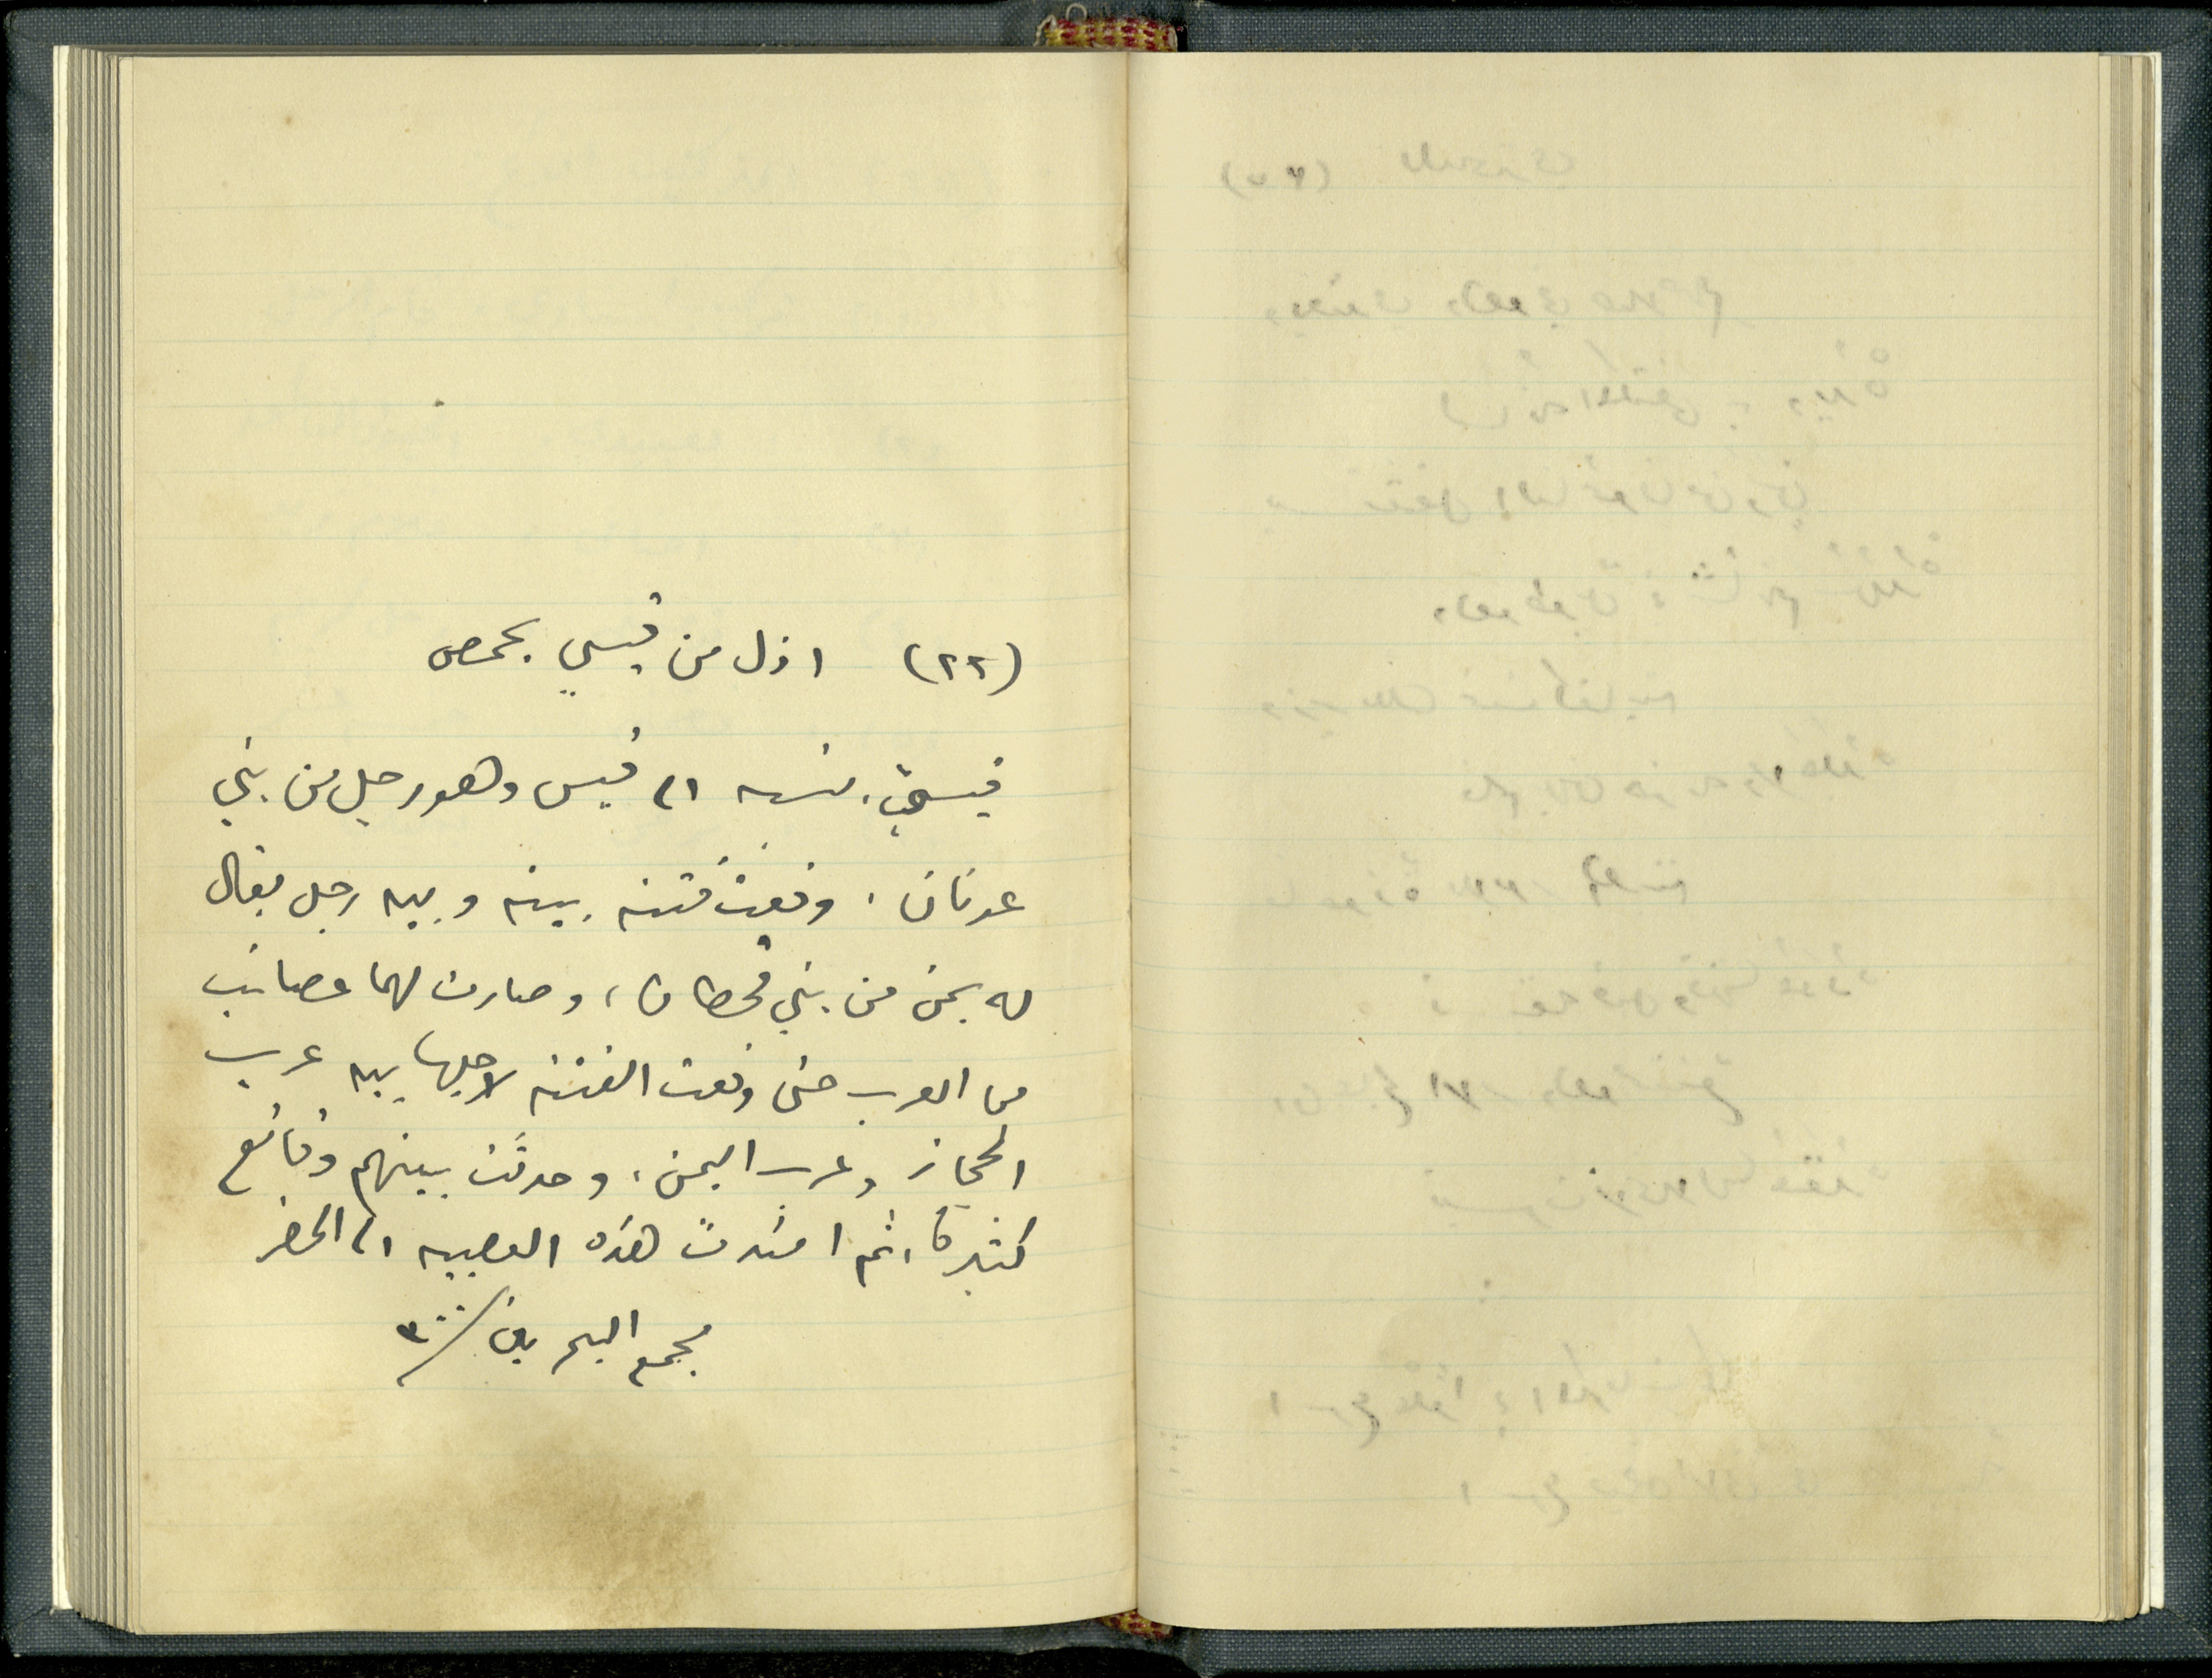 (٢٢) اذل من قيسي بحمص
قيسيّ، نسبه الى قيس وهو رجل من بني
عدنان، وقعت فتنه بينه وبين رجل يقال
له يمن من بني قحطان، وصارت لهما عصائب
من العرب حتى وقعت الفتنه لاجلها بين عرب
الحجاز وعرب اليمن، وحدثت بينهم وقائع
كثيرة، ثم امتدت هذه العصبيه الى الحضر
مجمع البحرين